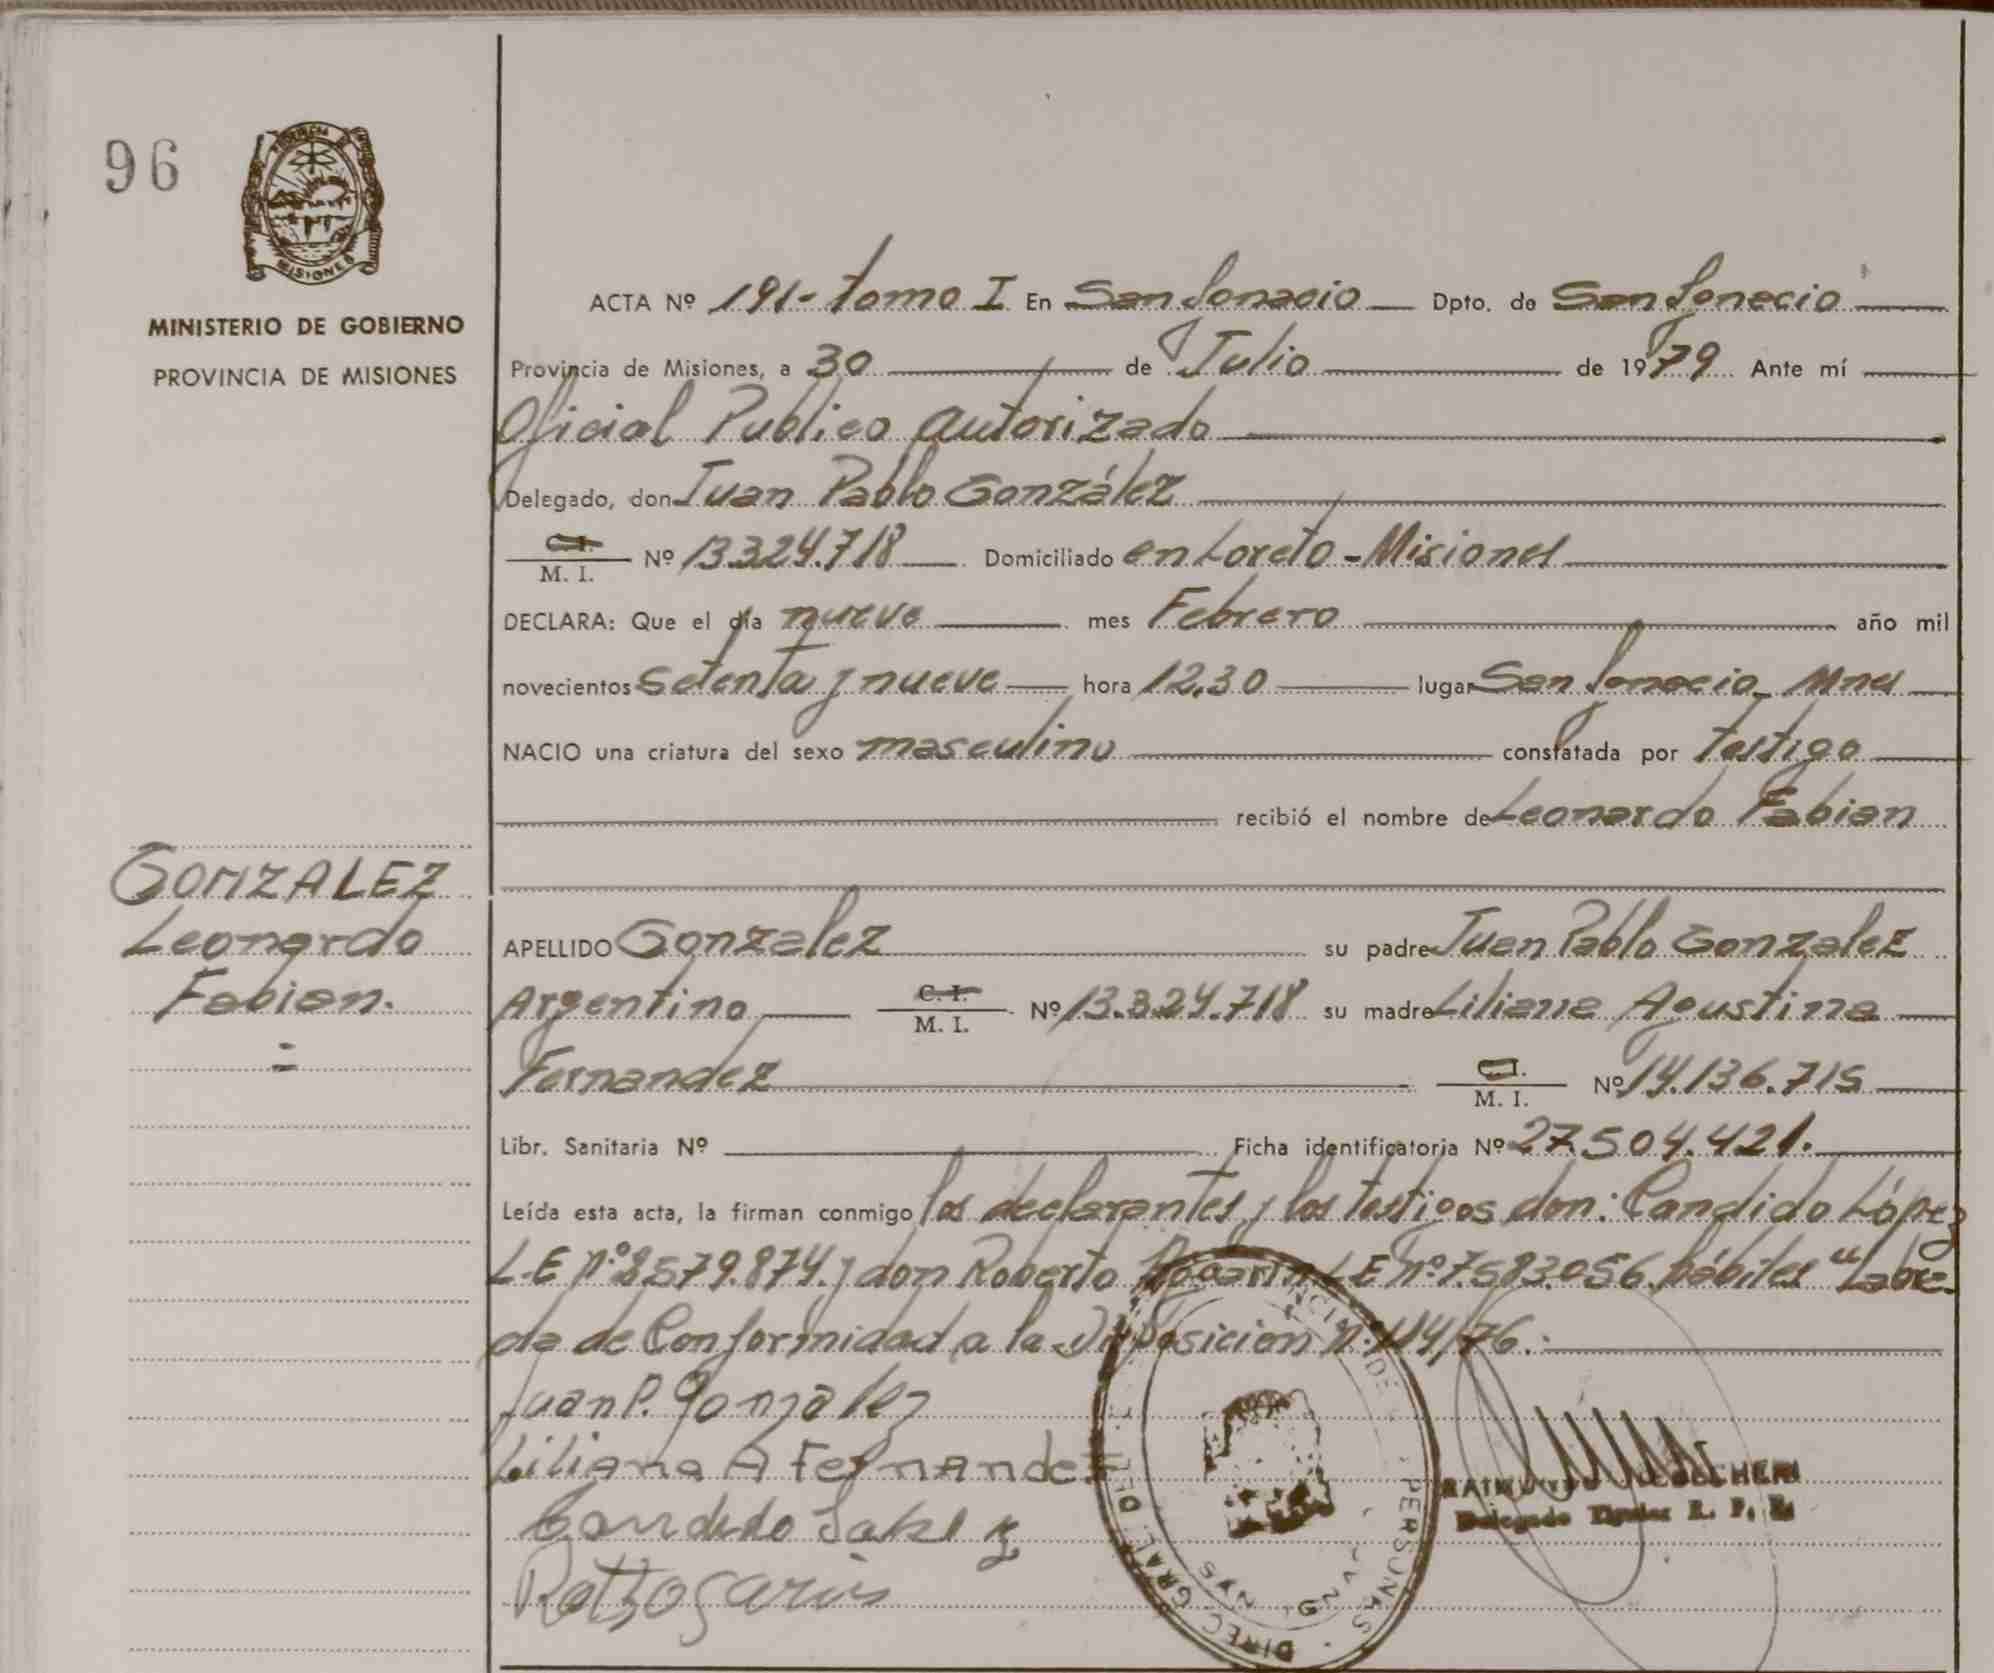 96
PROVINCIA DE
MISIONES
MINISTERIO DE GOBIERNO
PROVINCIA DE MISIONES
GONZALEZ
Leonardo
Fabian.
=
ACTA Nº 191- tomo I En San Ignacio Dpto. de San Ignacio
Provincia de Misiones, a 30 de Julio de 1979 Ante mí
Oficial Publico Autorizado
Delegado, don Juan Pablo González
C.I. M. I. Nº 13.324.718 Domiciliado en Loreto - Misiones
DECLARA: Que el día nueve mes Febrero año mil
novecientos setenta y nueve hora 12.30 lugar San Ignacio Mnes
NACIO una criatura del sexo masculino constatada por testigo
recibió el nombre de Leonardo Fabian
APELLIDO Gonzalez su padre Juan Pablo Gonzalez
Argentino C. I. M. I. Nº 13.324.718 su madre Liliana Agustina
Fernandez C.I. M. I. Nº 14.136.715
Libr. Sanitaria Nº Ficha identificatoria Nº 27.504.421.
Leída esta acta, la firman conmigo los declarantes y los testigos don: Candido López
L.E Nº 8579.874. y don Roberto LE Nº 7.583.056. hábiles "Labra-
da de Conformidad a la Disposicion Nº 114/76.
Juan P. Gonzalez
Liliana A Fernandez
Candido
DIREC. GRAL. DEL PERSONAS
SAN IGN
Delegado Titular R. P.